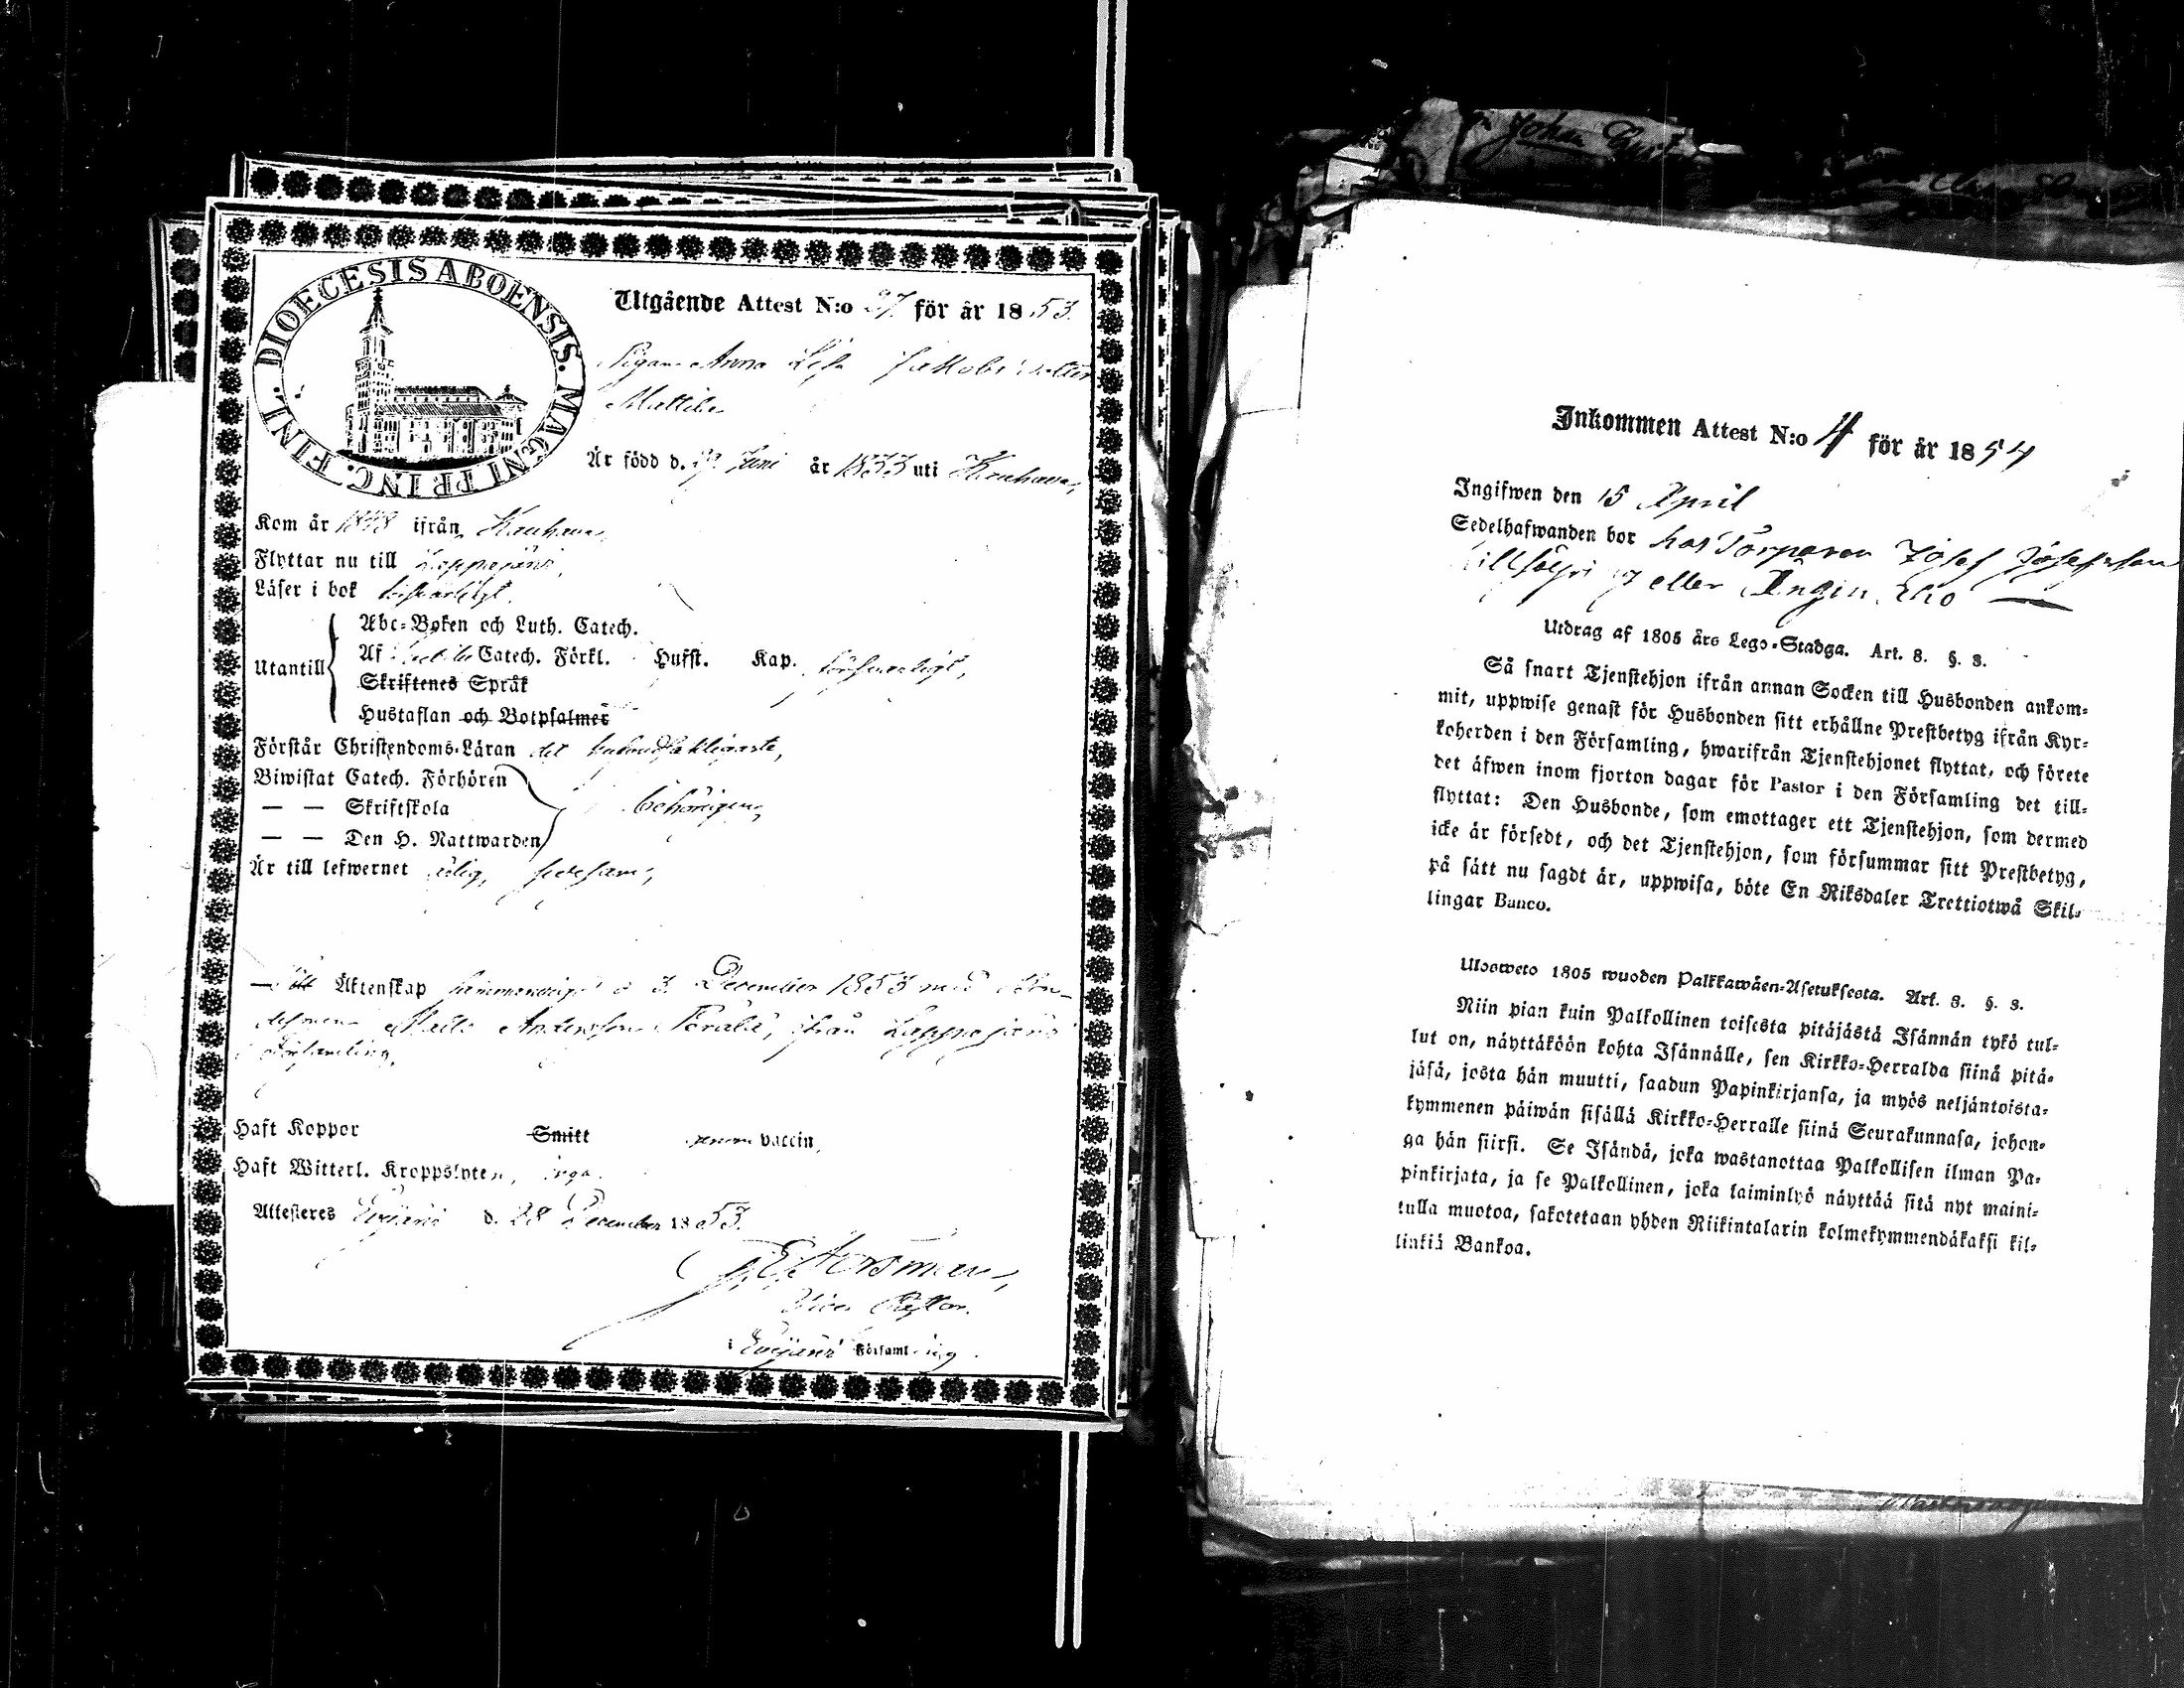 DIOECESIS ABOENSIS. MAGNI PRINC. FINL.
Utgående Attest N:o 27 för år 1853.
Pigan Anna Lisa Jakobsdotter
Är född d. 29 Juni år 1833 uti Kauhava,
Kom år 1848 ifrån Kauhava,
Flyttar nu till Lappajärvi,
Läser i bok försvarligt.
Utantill
Abc-Boken och Luth. Catech.
Af Catech. Förkl. Hufst. Kap. försvarligt,
Skriftenes Språk
Hustaflan och Botpsalmer
Förstår Christendoms-Läran det hufvudsakligaste,
Biwistat Catech. Förhören
— — Skriftskola behörigen,
— — Den H. Nattwarden
Är till lefwernet ärlig,
Till Äktenskap sammanvigd d. 3 December 1853 med Bon-
desonen Matts Andersson ifrån Lappajärvi
Församling.
Haft Koppor Smitt genom vaccin,
Haft Witterl. Kroppslyten, inga.
Attesteras Evijärvi d. 28 December 1853.
Vice Pastor.
i Evijärvi Församling.
Inkommen Attest N:o 4 för år 1854
Ingifwen den 15 April
Sedelhafwanden bor hos Torparen Josef Josefsson
eller
Utdrag af 1805 års Lego-Stadga. Art. 8. §. 8.
Så snart Tjenstehjon ifrån annan Socken till Husbonden ankom-
mit, uppwise genast för Husbonden sitt erhållne Prestbetyg ifrån Kyr-
koherden i den Församling, hwarifrån Tjenstehjonet flyttat, och förete
det äfwen inom fjorton dagar för Pastor i den Församling det till-
flyttat: Den Husbonde, som emottager ett Tjenstehjon, som dermed
icke är försedt, och det Tjenstehjon, som försummar sitt Prestbetyg,
på sätt nu sagdt är, uppwisa, böte En Riksdaler Trettiotwå Skil-
lingar Banco.
Ulosweto 1805 wuoden Palkkawäen-Asetuksesta. Art. 8. §. 8.
Niin pian kuin Palkollinen toisesta pitäjästä Isännän tykö tul-
lut on, näyttäköön kohta Isännälle, sen Kirkko-Herralda siinä pitä-
jäsä, josta hän muutti, saadun Papinkirjansa, ja myös neljäntoista-
kymmenen päiwän sisällä Kirkko-Herralle siinä Seurakunnasa, johon-
ga hän siirsi. Se Isändä, joka wastanottaa Palkollisen ilman Pa-
pinkirjata, ja se Palkollinen, joka laiminlyö näyttää sitä nyt maini-
tulla muotoa, sakotetaan yhden Riikintalarin kolmekymmendäkaksi kil-
linkiä Bankoa.